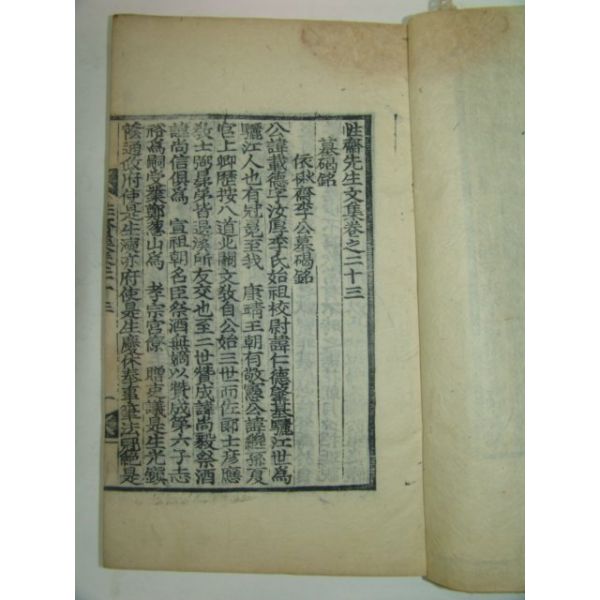 性齋先生文集卷之二十三
墓碣銘
依楸齋李公墓碣銘
公諱載德字汝厚李氏始祖校尉諱仁德肇基驪江世爲
驪江人也有冠冕至我 康靖王朝有敬憲公諱繼孫夏
官上卿歷按八道北關文敎自公始三世而佐郞士彦廳
敎士弼昆弟皆退溪所友交也至二世贊成諱尚毅祭酒
諱尚信俱爲 宣祖朝名臣祭酒無嫡以贊成第六子志
裕爲嗣受業鄭蔥山爲 孝宗宮僚 贈吏議是生光鎭
蔭通政府使是生瀷亦府使是生慶休奉事筆法
絕是